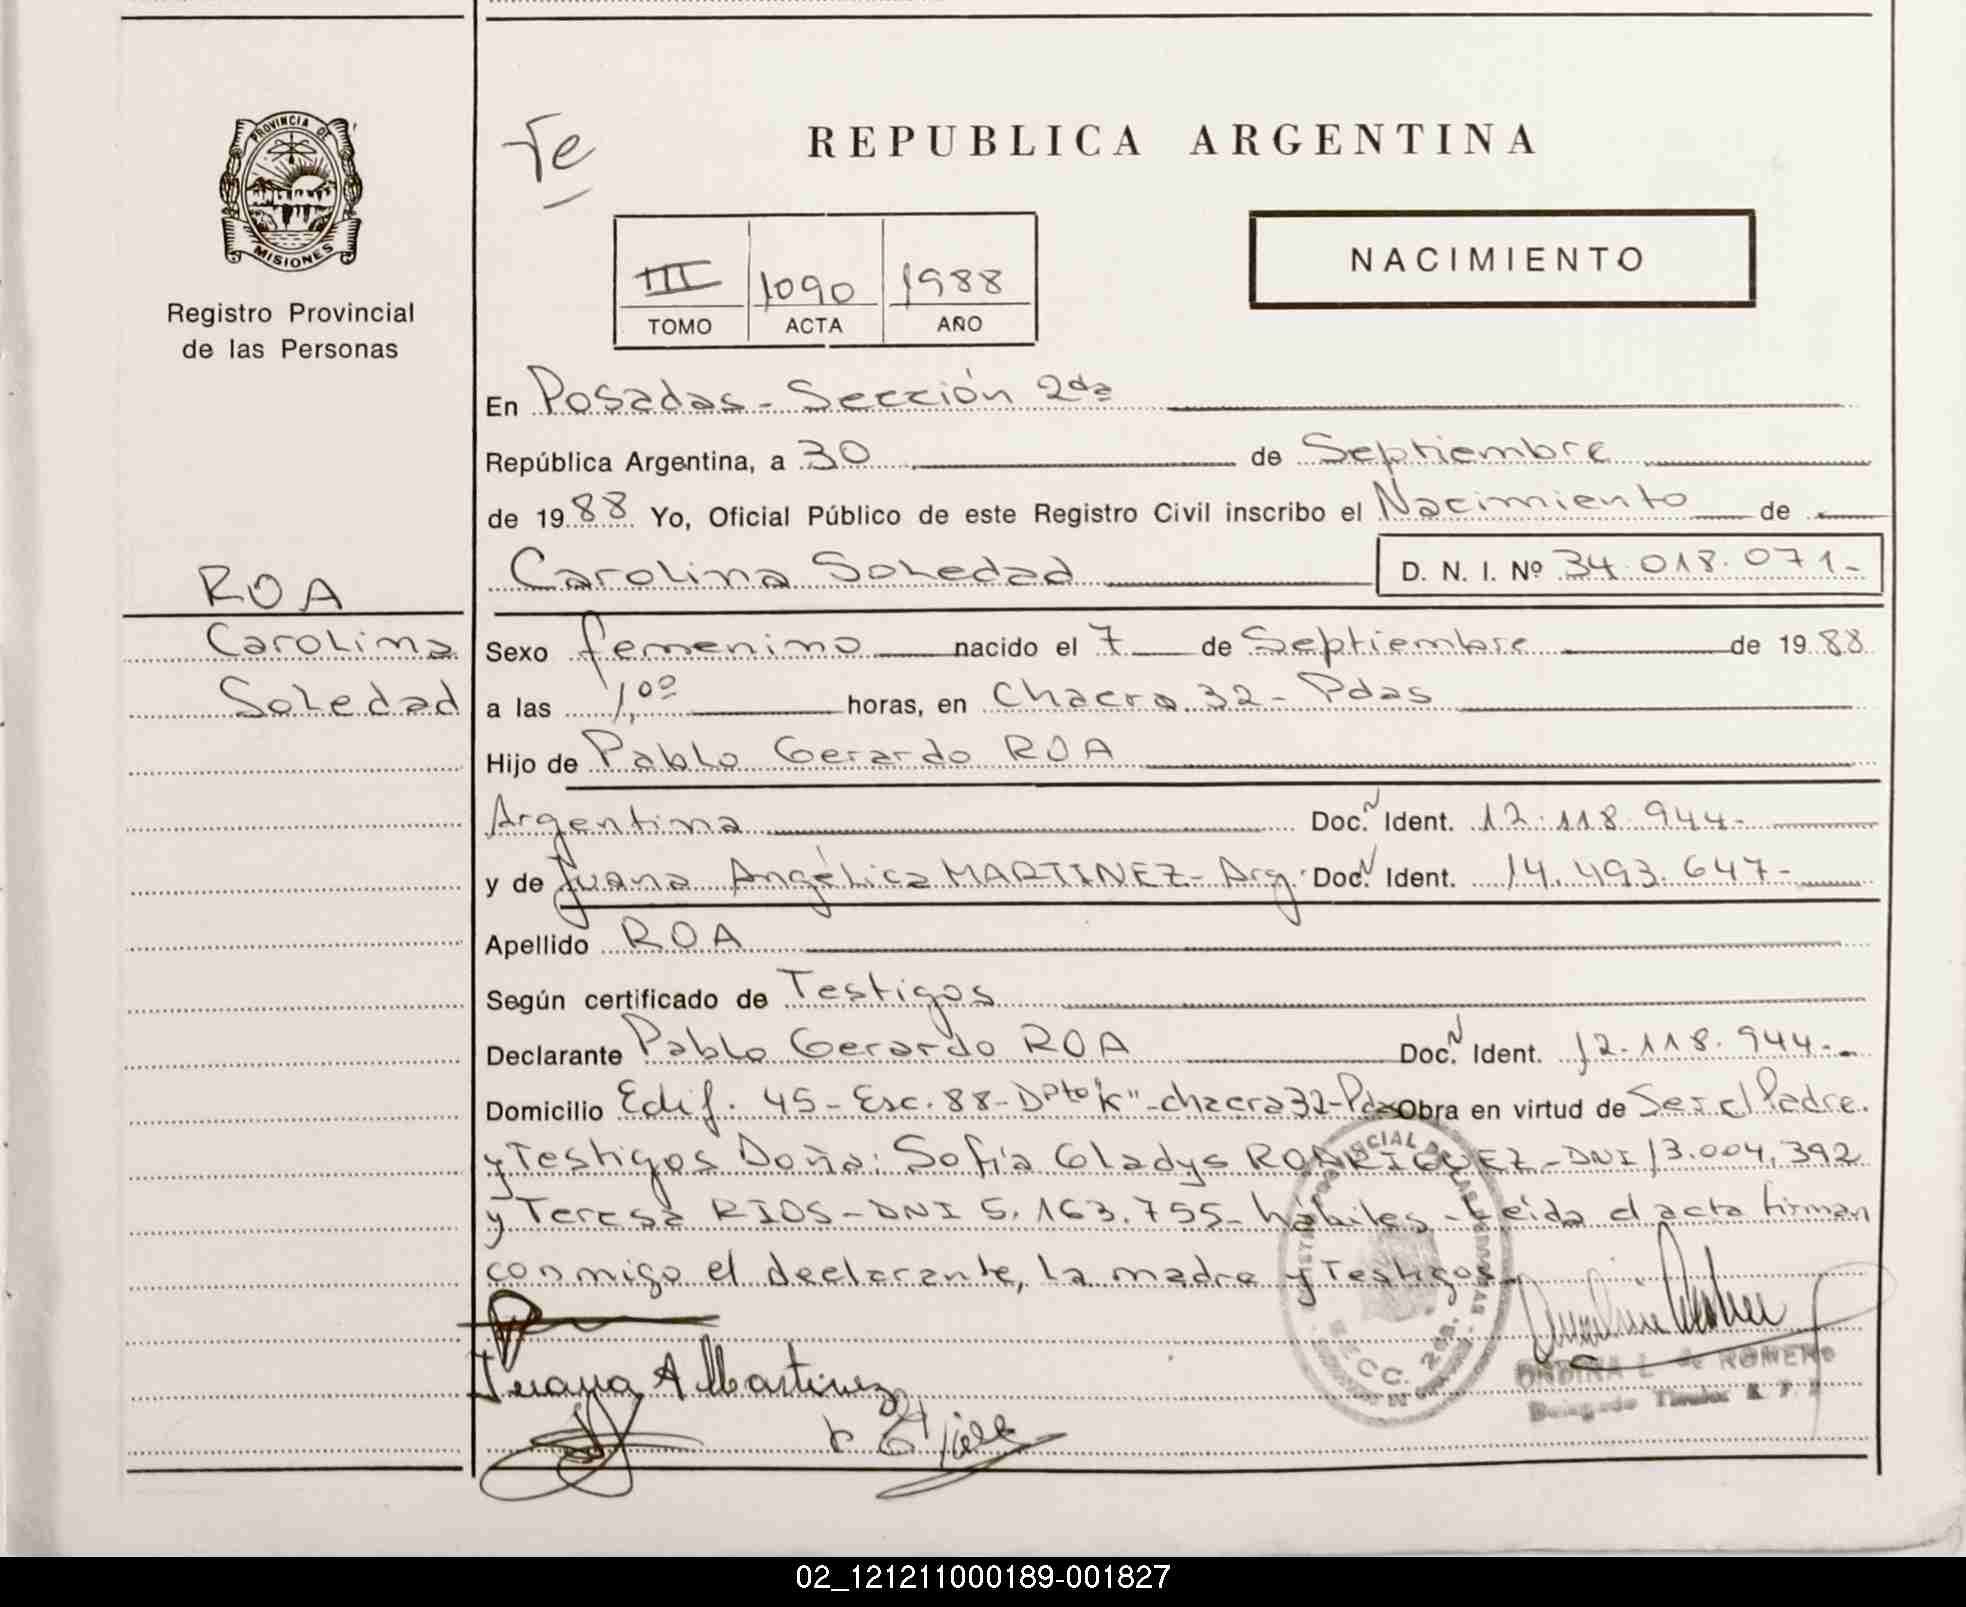 PROVINCIA DE
MISIONES
Registro Provincial
de las Personas
ROA
Carolina
Soledad
Te
REPUBLICA ARGENTINA
III 1090 1988
TOMO ACTA AÑO
NACIMIENTO
En Posadas - Sección 2da
República Argentina, a 30 de Septiembre
de 1988 Yo, Oficial Público de este Registro Civil inscribo el Nacimiento de
Carolina Soledad D. N. I. Nº 34.018.071-
Sexo femenino nacido el 7 de Septiembre de 1988
a las 1,00 horas, en Chacra 32 - Pdas
Hijo de Pablo Gerardo ROA
Argentina Doc. N Ident. 12.118.944-
y de Juana Angélica MARTINEZ - Arg. Doc. N Ident. 14.493.647-
Apellido ROA
Según certificado de Testigos
Declarante Pablo Gerardo ROA Doc. N Ident. 12.118.944-
Domicilio Edif. 45 - Esc. 88 - Dpto "K" - chacra 32 - Pdas Obra en virtud de Ser el Padre.
y Testigos Doña: Sofía Gladys RODRIGUEZ - DNI 13.004.392
y Teresa RIOS - DNI 5.163.755 - hábiles - Leída el acta firman
conmigo el declarante, la madre y Testigos -
Juana A Martinez
ONDINA L. de ROMERO
Delegado Titular R. P. P
R. CC. 2da.
02_121211000189-001827